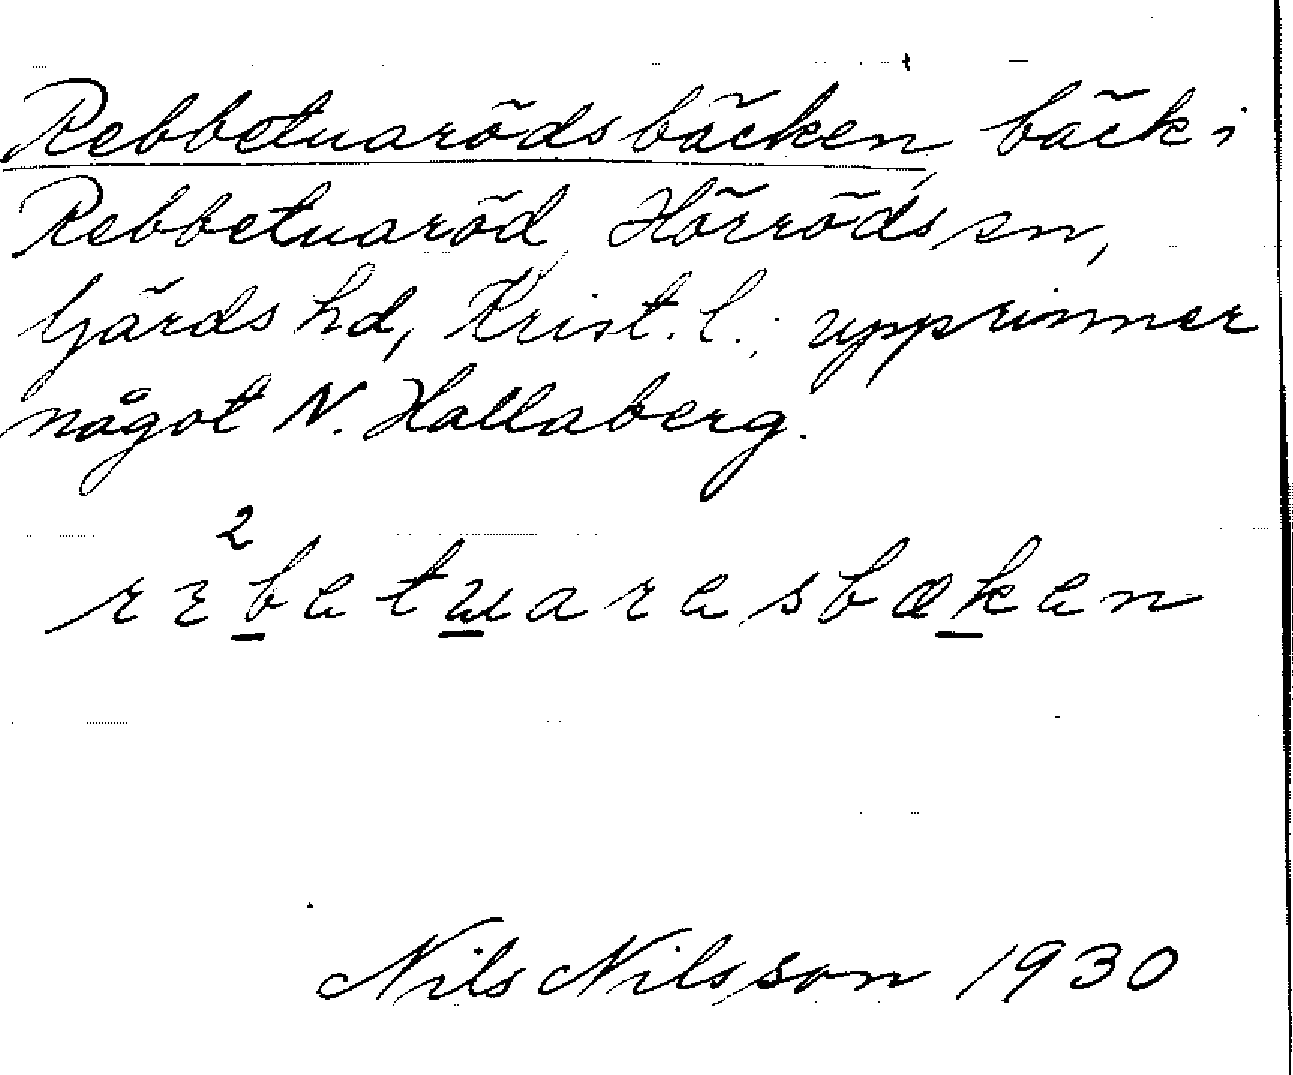 Rebbetuarödsbäcken, bäck i
Rebbetuaröd, Hörröds sn,
Gärds hd, Krist. l.; upprinner
något N. Hallaberg.
2
rɛbetuaresbæken
Nils Nilsson 1930